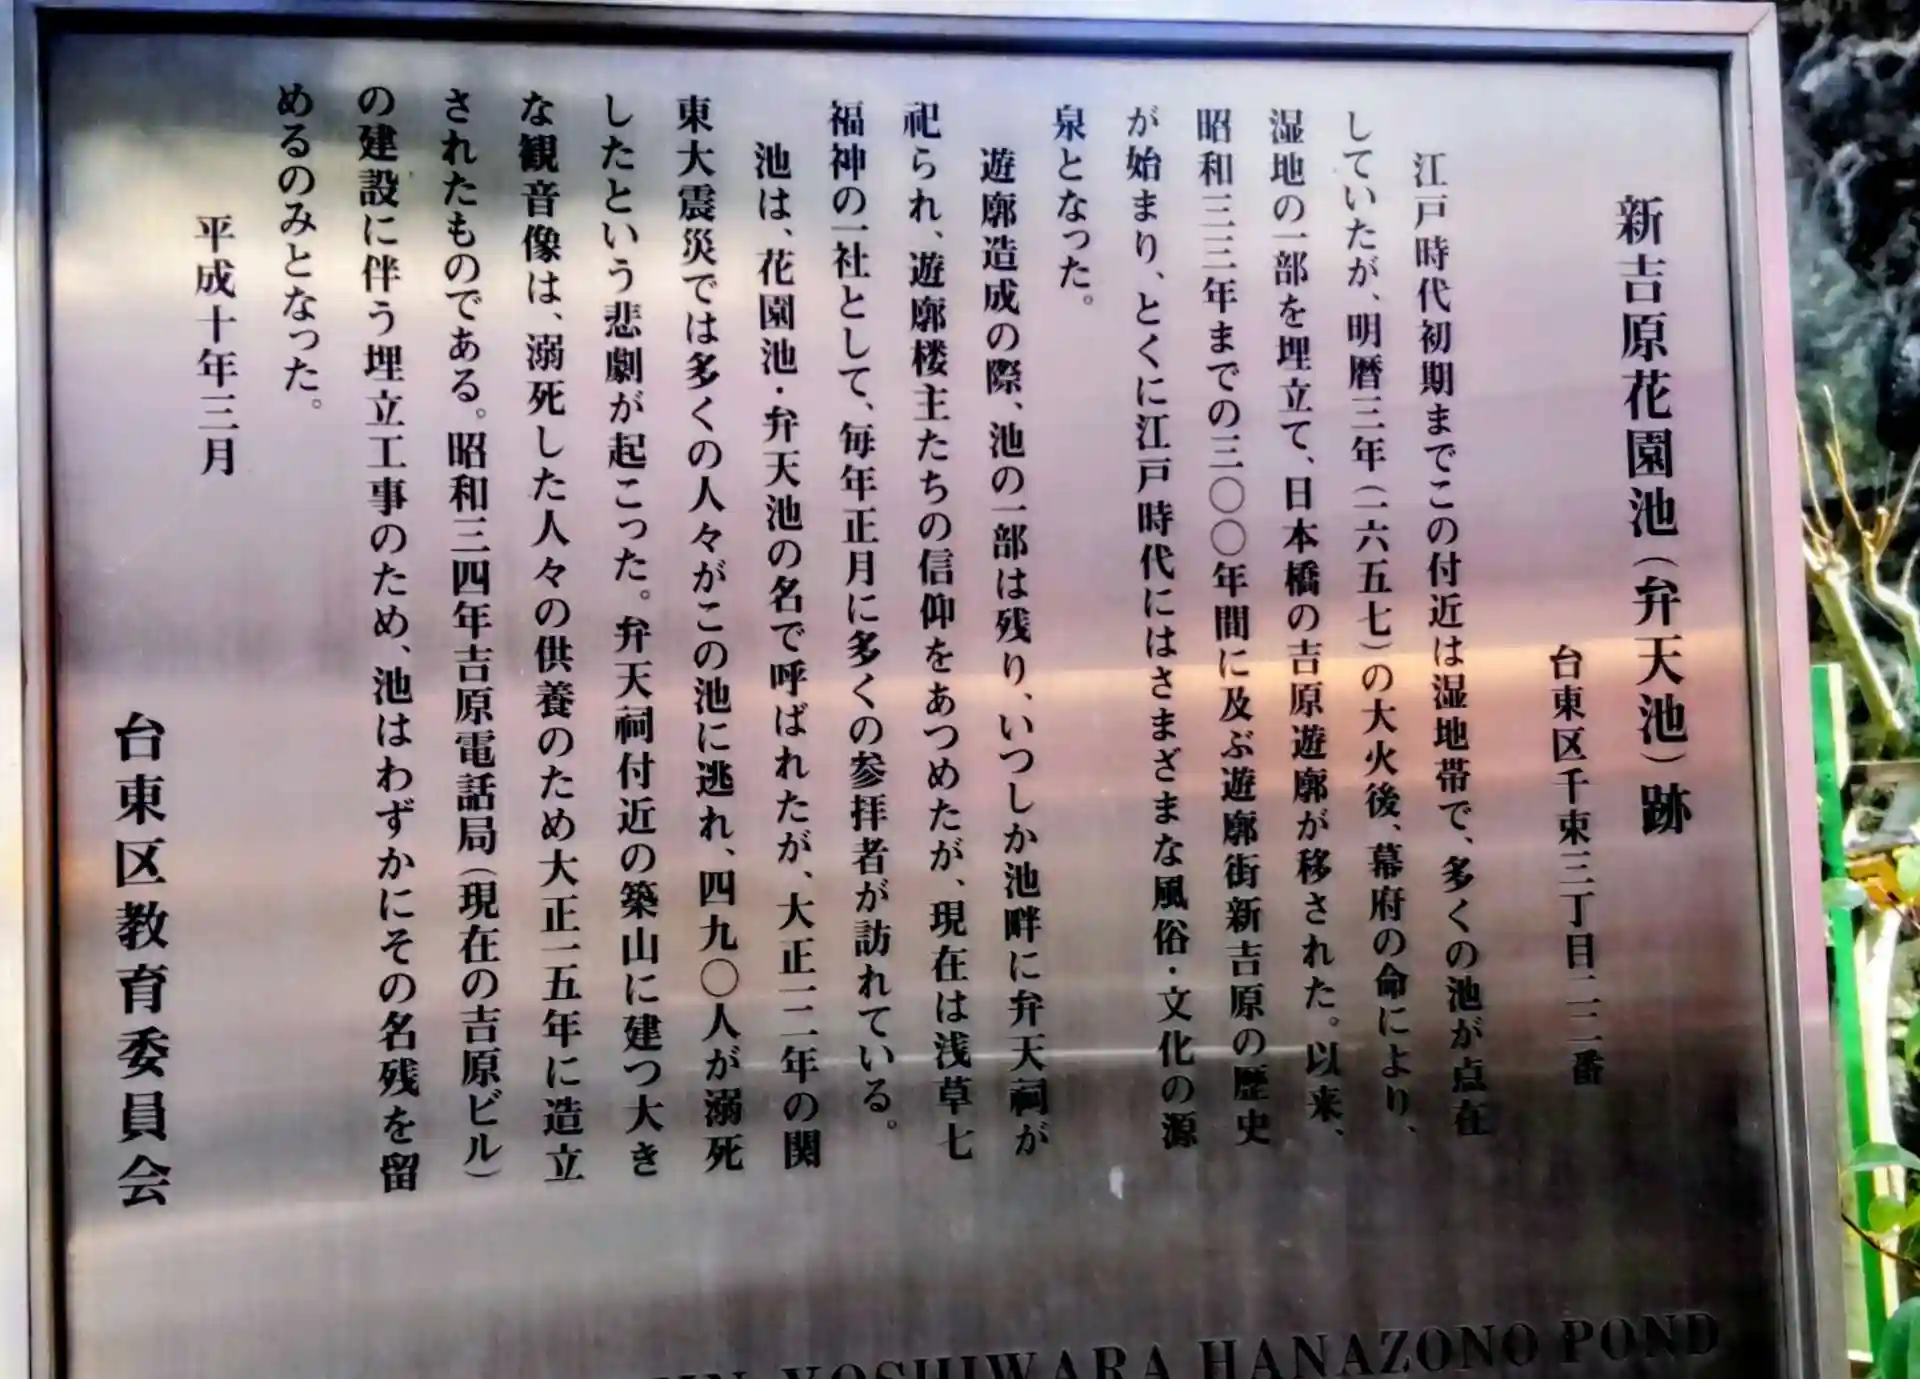 新吉原花園池(弁天池)跡
台東区千束三丁目二二番
江戸時代初期までこの付近は湿地帯で、多くの池が点在
していたが、明暦三年(一六五七)の大火後、幕府の命により、
湿地の一部を埋立て、日本橋の吉原遊廓が移された。以来、
昭和三三年までの三〇〇年間に及ぶ遊廓街新吉原の歴史
が始まり、とくに江戸時代にはさまざまな風俗・文化の源
泉となった。
遊廓造成の際、池の一部は残り、いつしか池畔に弁天祠が
祀られ、遊廓楼主たちの信仰をあつめたが、現在は浅草七
福神の一社として、毎年正月に多くの参拝者が訪れている。
池は、花園池・弁天池の名で呼ばれたが、大正一二年の関
東大震災では多くの人々がこの池に逃れ、四九〇人が溺死
したという悲劇が起こった。弁天祠付近の築山に建つ大き
な観音像は、溺死した人々の供養のため大正一五年に造立
されたものである。昭和三四年吉原電話局(現在の吉原ビル)
の建設に伴う埋立工事のため、池はわずかにその名残を留
めるのみとなった。
平成十年三月
台東区教育委員会
YOSHIWARA HANAZONO POND